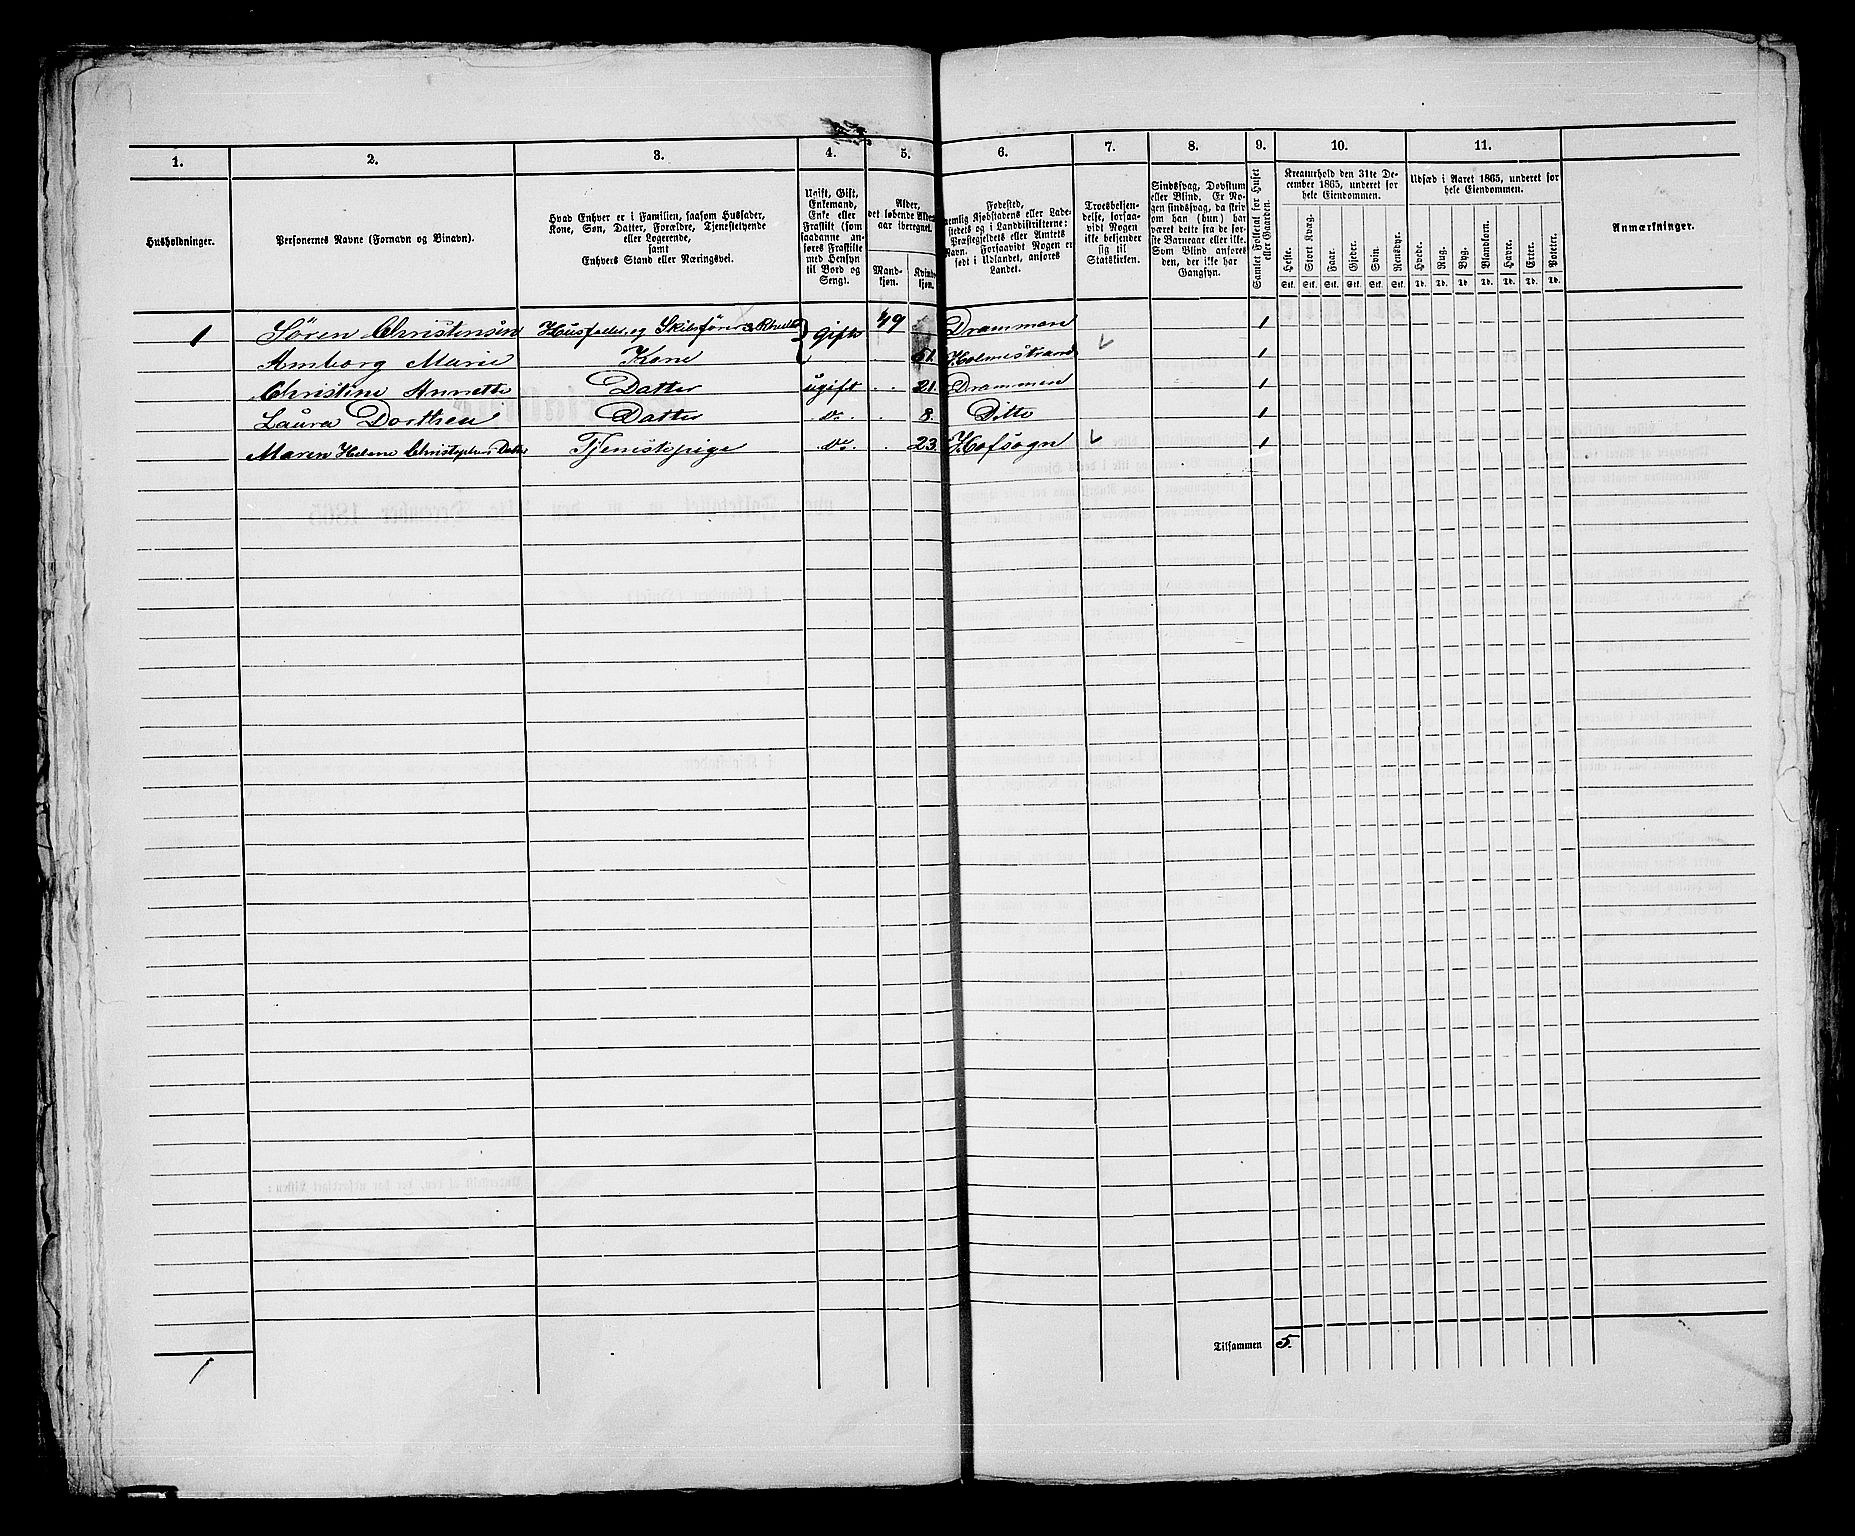 1. 2. 3. 4. 5. 6. 7. 8. 9. 10. 11.
Husholdninger.
Personernes Navne (Fornavn og Binavn).
Hvad Enhver er i Familien, saasom Husfader,
Kone, Søn, Datter, Forældre, Tjenestetyende
eller Logerende,
samt
Enhvers Stand eller Næringsvei.
Ugift, Gift,
Enkemand,
Enke eller
Fraskilt (som
saadanne an-
føres Fraskilte
med Hensyn
til Bord og
Seng).
Alder,
det løbende Alders-
aar iberegnet.
Mand-
kjøn.
Kvinde-
kjøn.
Fødested,
nemlig Kjøbstadens eller Lade-
stedets og i Landdistrikterne:
Præstegjeldets eller Amtets
Navn. Forsaavidt Nogen er
født i Udlandet, anføres
Landet.
Troesbekjen-
delse, forsaa-
vidt Nogen
ikke bekjender
sig til
Statskirken.
Sindssvag, Døvstum
eller Blind. Er No-
gen sindssvag, da skriv
om han (hun) har
været dette fra de før-
ste Barneaar eller ikke.
Som Blind anføres
den, der ikke har
Gangsyn.
Samlet Folketal for Huset
eller Gaarden.
Kreaturhold den 31te De-
cember 1865, underet for
hele Eiendommen.
Heste. Stort Kvæg. Faar. Gjeder. Svin. Rensdyr.
Stk. Stk. Stk. Stk. Stk. Stk.
Udsæd i Aaret 1865, underet for
hele Eiendommen.
Hvede. Rug. Byg. Blandkorn. Havre. Erter. Poteter.
Td. Td. Td. Td. Td. Td. Td.
Anmærkninger.
1 Søren Christensen Husfader og Skibsfører Gift 49 Drammen 1
Amborg Marie Kone 51. Holmestrand 1
Christine Annette Datter ugift 21. Drammen 1
Laura Dorthea Datter do. 8. Ditto 1
Maren Helene Christophers Datter Tjenestepige do. 23. Hofsogn 1
Tilsammen 5.
1